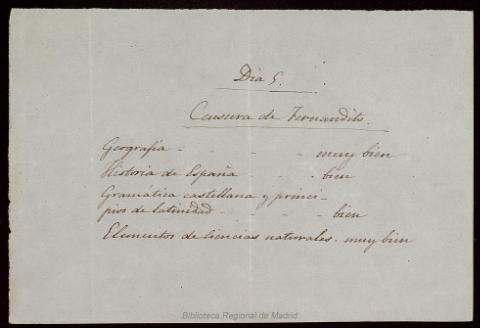 Dia 5.
Censura de Fernandito.
Geografia - - - - muy bien
Historia de España - - . bien
Gramática castellana y princi-
pios de latinidad - - - - bien
Elementos de ciencias naturales. muy bien
Biblioteca Regional de Madrid